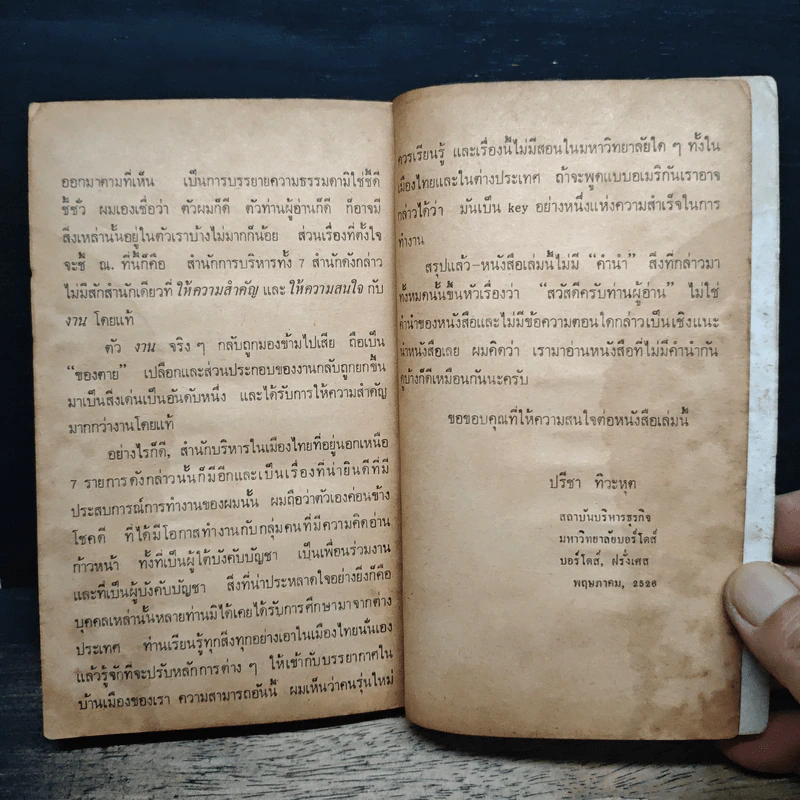 ออกมาตามที่เห็น เป็นการบรรยายความธรรมดามิใช่ชี้ดี
ชี้ชั่ว ผมเองเชื่อว่า ตัวผมก็ดี ตัวท่านผู้อ่านก็ดี ก็อาจมี
สิ่งเหล่านั้นอยู่ในตัวเราบ้างไม่มากก็น้อย ส่วนเรื่องที่ตั้งใจ
จะชี้ ณ. ที่นี้ก็คือ สำนักการบริหารทั้ง 7 สำนักดังกล่าว
ไม่มีสักสำนักเดียวที่ ให้ความสำคัญ และ ให้ความสนใจ กับ
งาน โดยแท้
ตัว งาน จริง ๆ กลับถูกมองข้ามไปเสีย ถือเป็น
“ของตาย” เปลือกและส่วนประกอบของงานกลับถูกยกขึ้น
มาเป็นสิ่งเด่นเป็นอันดับหนึ่ง และได้รับการให้ความสำคัญ
มากกว่างานโดยแท้
อย่างไรก็ดี, สำนักบริหารในเมืองไทยที่อยู่นอกเหนือ
7 รายการดังกล่าวนั้นก็มีอีกและเป็นเรื่องที่น่ายินดีที่มี
ประสบการณ์การทำงานของผมนั้น ผมถือว่าตัวเองค่อนข้าง
โชคดี ที่ได้มีโอกาสทำงานกับกลุ่มคนที่มีความคิดอ่าน
ก้าวหน้า ทั้งที่เป็นผู้ใต้บังคับบัญชา เป็นเพื่อนร่วมงาน
และที่เป็นผู้บังคับบัญชา สิ่งที่น่าประหลาดใจอย่างยิ่งก็คือ
บุคคลเหล่านั้นหลายท่านมิได้เคยได้รับการศึกษามาจากต่าง
ประเทศ ท่านเรียนรู้ทุกสิ่งทุกอย่างเอาในเมืองไทยนั่นเอง
แล้วรู้จักที่จะปรับหลักการต่าง ๆ ให้เข้ากับบรรยากาศใน
บ้านเมืองของเรา ความสามารถอันนี้ ผมเห็นว่าคนรุ่นใหม่
ควรเรียนรู้ และเรื่องนี้ไม่มีสอนในมหาวิทยาลัยใด ๆ ทั้งใน
เมืองไทยและในต่างประเทศ ถ้าจะพูดแบบอเมริกันเราอาจ
กล่าวได้ว่า มันเป็น key อย่างหนึ่งแห่งความสำเร็จในการ
ทำงาน
สรุปแล้ว–หนังสือเล่มนี้ไม่มี “คำนำ” สิ่งที่กล่าวมา
ทั้งหมดนั้นขึ้นหัวเรื่องว่า “สวัสดีครับท่านผู้อ่าน” ไม่ใช่
คำนำของหนังสือและไม่มีข้อความตอนใดกล่าวเป็นเชิงแนะ
นำหนังสือเลย ผมคิดว่า เรามาอ่านหนังสือที่ไม่มีคำนำกัน
ดูบ้างก็ดีเหมือนกันนะครับ
ขอขอบคุณที่ให้ความสนใจต่อหนังสือเล่มนี้
ปรีชา ทิวะหุต
สถาบันบริหารธุรกิจ
มหาวิทยาลัยบอร์โดส์
บอร์โดส์, ฝรั่งเศส
พฤษภาคม, 2526